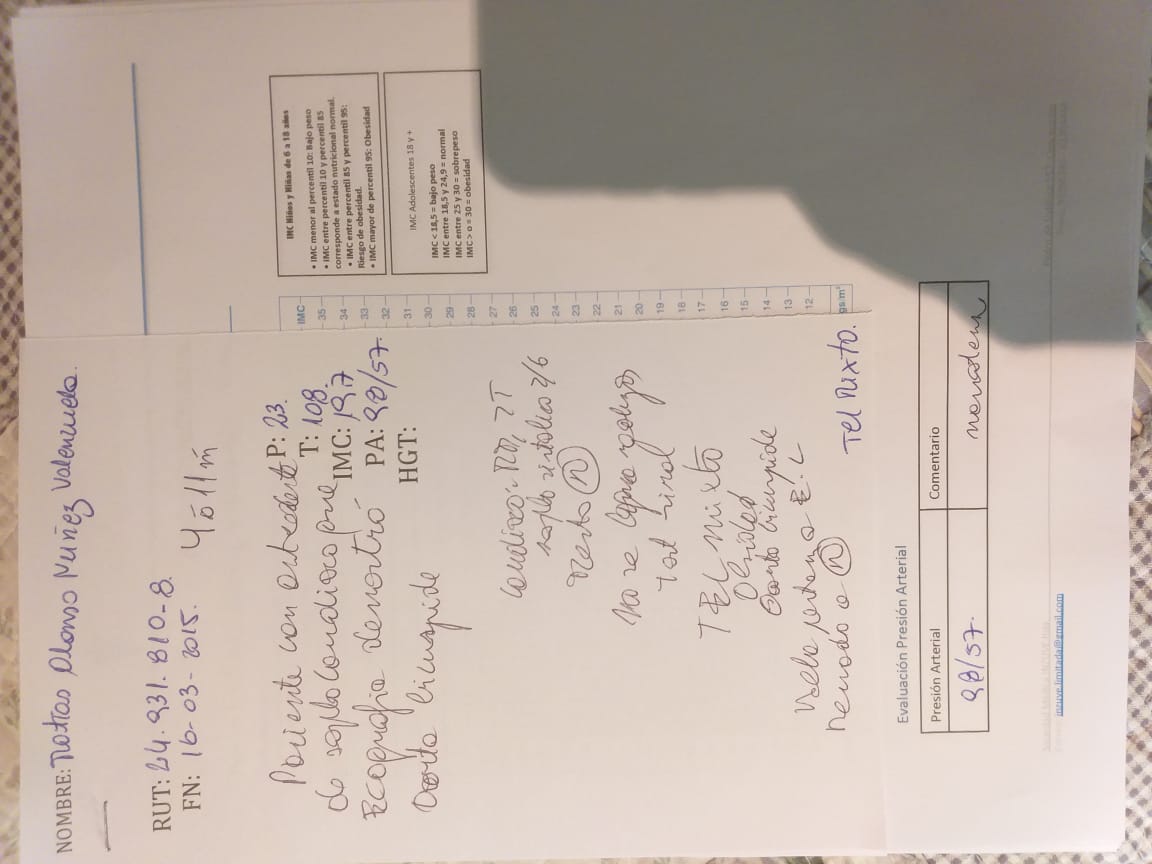 NOMBRE: Matias Alonso Nuñez Valenzuela.
RUT: 24.931.810-8.
FN: 16-03-2015.
4ó11m
Paciente con antecedente
de soplo cardiaco que
Ecografia demostró
Aorta bicuspide
P: 23.
T: 108.
IMC: 19,7
PA: 98/57.
HGT:
cardiaco: RR, 2T
soplo sistolico 2/6
Resto N
no se
Test
TEL mixto
Obesidad
Aorta bicuspide
N
Tel Mixto.
IMC
35
34
33
32
31
30
29
28
27
26
25
24
23
22
21
20
19
18
17
16
15
14
13
12
gs/m²
IMC Niños y Niñas de 6 a 18 años
• IMC menor al percentil 10: Bajo peso
• IMC entre percentil 10 y percentil 85
corresponde a estado nutricional normal.
• IMC entre percentil 85 y percentil 95:
Riesgo de obesidad.
• IMC mayor de percentil 95: Obesidad
IMC Adolescentes 18 y +
IMC < 18,5 = bajo peso
IMC entre 18,5 y 24,9 = normal
IMC entre 25 y 30 = sobrepeso
IMC > o = 30 = obesidad
Evaluación Presión Arterial
Presión Arterial
Comentario
98/57.
inzuve.limitada@gmail.com